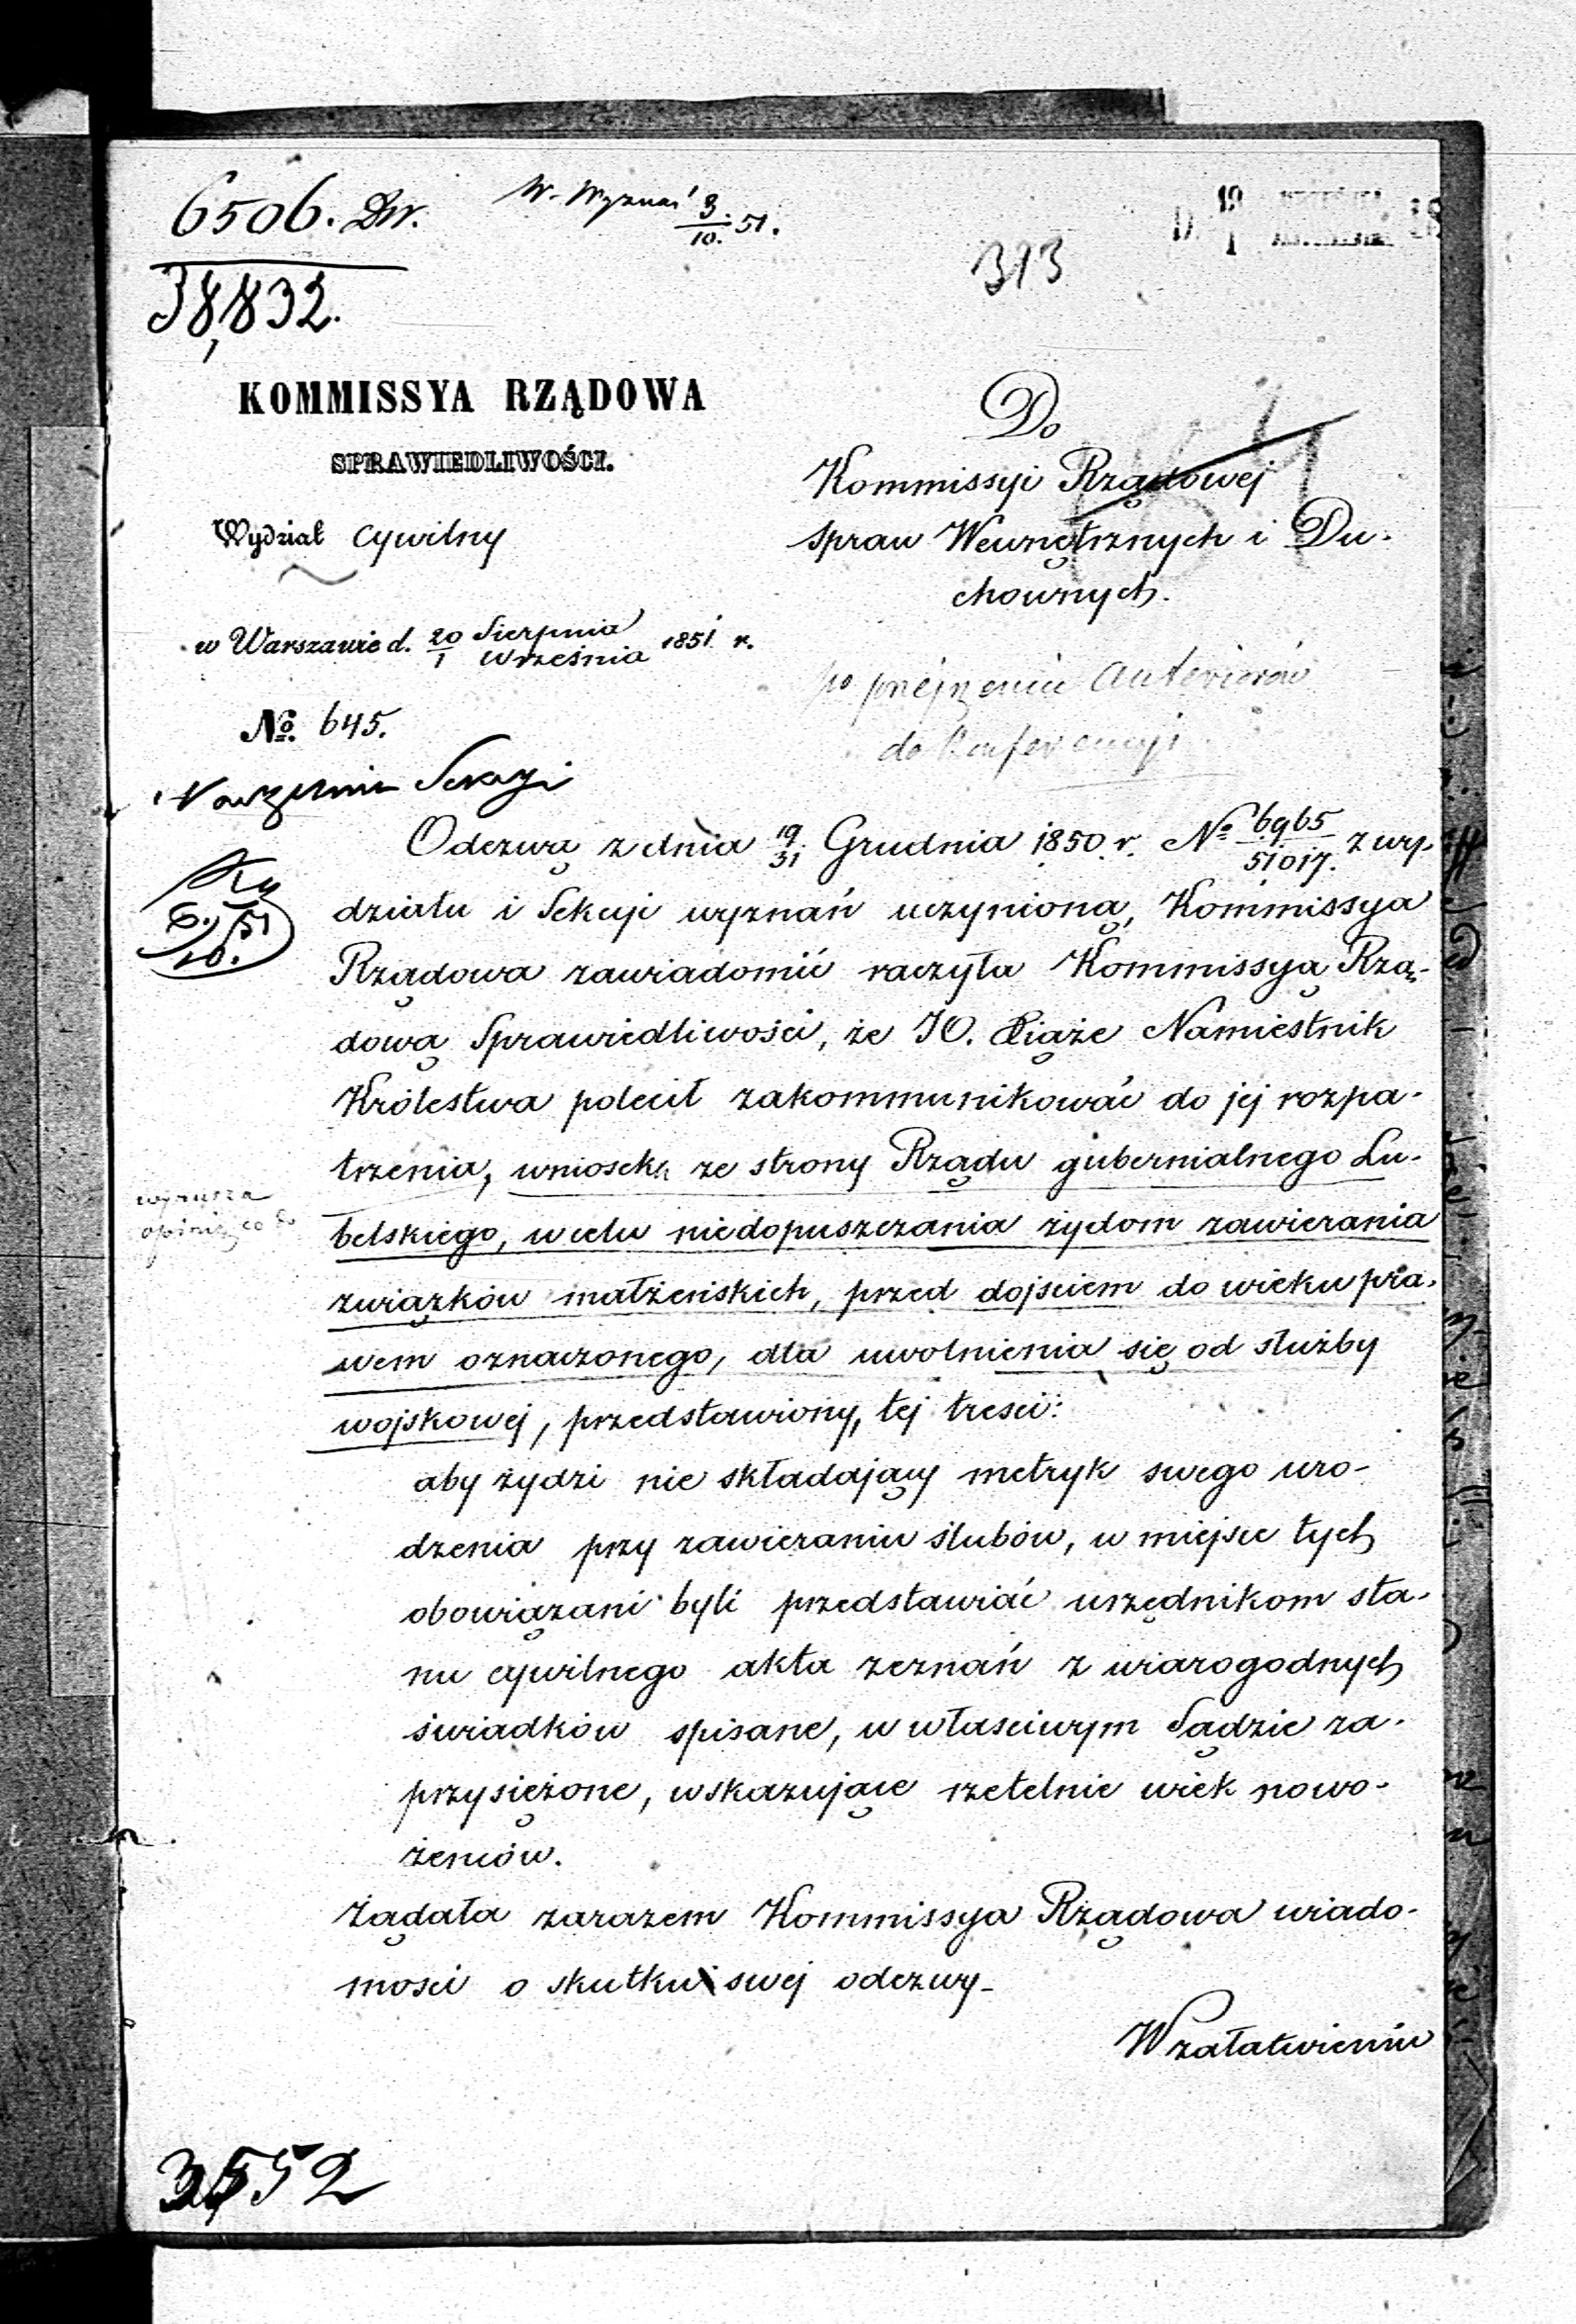 6506. Dw.
38,832.
W. Wyznań 3/10. 51.
313
D. 19/1
KOMMISSYA RZĄDOWA
SPRAWIEDLIWOŚCI.
Wydział cywilny
w Warszawie d. 20/1 Sierpnia/Września 1851 r.
No. 645.
Do
Kommissyi Rządowej
spraw Wewnętrznych i Du-
chownych.
po przejrzeniu anteriorów
do Konferencyi
Naczelnik Sekcyi
6./10. 51
Odezwą z dnia 19/31 Grudnia 1850 r. No 6965/51017. z wy-
działu i Sekcji wyznań uczynioną, Kommissya
Rządowa zawiadomić raczyła Kommissyą Rzą-
dową Sprawiedliwości, że JO. Xiąże Namiestnik
Królestwa polecił zakommunikować do jej rozpa-
trzenia, wniosek ze strony Rządu gubernialnego Lu-
belskiego, w celu niedopuszczania żydom zawierania
związków małżeńskich, przed dojściem do wieku pra-
wem oznaczonego, dla uwolnienia się od służby
wojskowej, przedstawiony, tej treści:
aby żydzi nie składający metryk swego uro-
dzenia przy zawieraniu ślubów, w miejsce tych
obowiązani byli przedstawiać urzędnikom sta-
nu cywilnego akta zeznań z wiarogodnych
świadków spisane, w właściwym Sądzie za-
przysiężone, wskazujące rzetelnie wiek nowo-
żeńców.
Żądała zarazem Kommissya Rządowa wiado-
mości o skutku swej odezwy-
W załatwieniu
opinię co do
3552